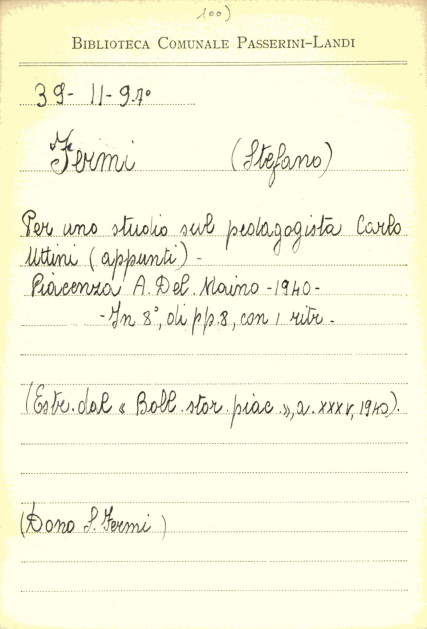 100)
BIBLIOTECA COMUNALE PASSERINI-LANDI
39-11-97°
Fermi (Stefano)
Per uno studio sul pedagogista Carlo
Uttini (appunti) -
Piacenza A. Del. Maino - 1940 -
- In 8°, di pp. 8, con 1 ritr. -
(Estr. dal « Boll. stor. piac. », a. XXXV, 1940).
(Dono S. Fermi)